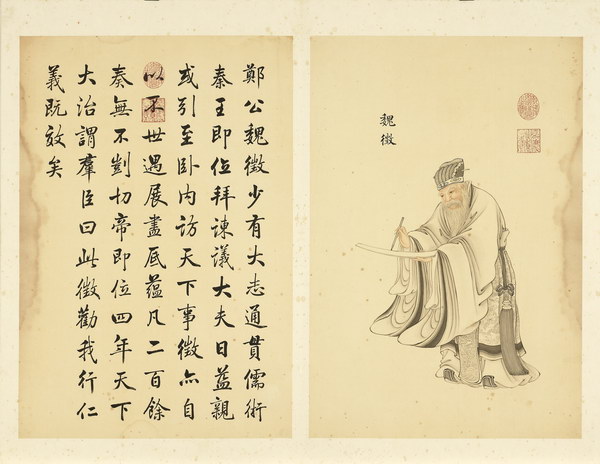 魏徵
鄭公魏徵少有大志通貫儒術
秦王即位拜諫議大夫日益親
或引至卧内訪天下事徵亦自
以不世遇展盡底蘊凡二百餘
奏無不剴切帝即位四年天下
大治謂羣臣曰此徵勸我行仁
義既效矣